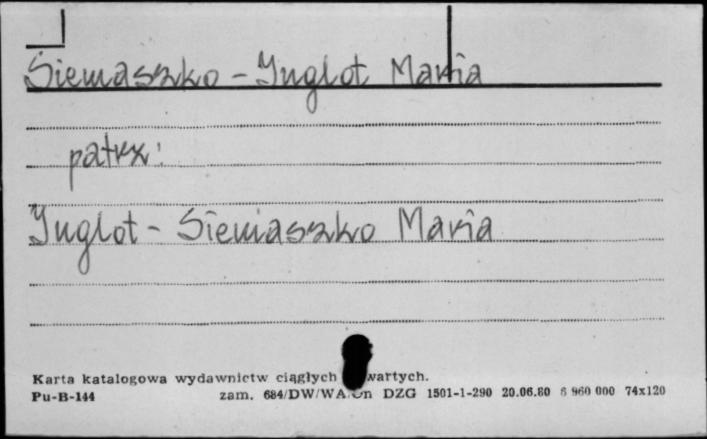 Siemaszko - Inglot Maria
patrz:
Inglot - Siemaszko Maria
Karta katalogowa wydawnictw ciągłych wartych.
Pu-B-144 zam. 684/DW/WA/On DZG 1501-1-290 20.06.80 6 960 000 74x120